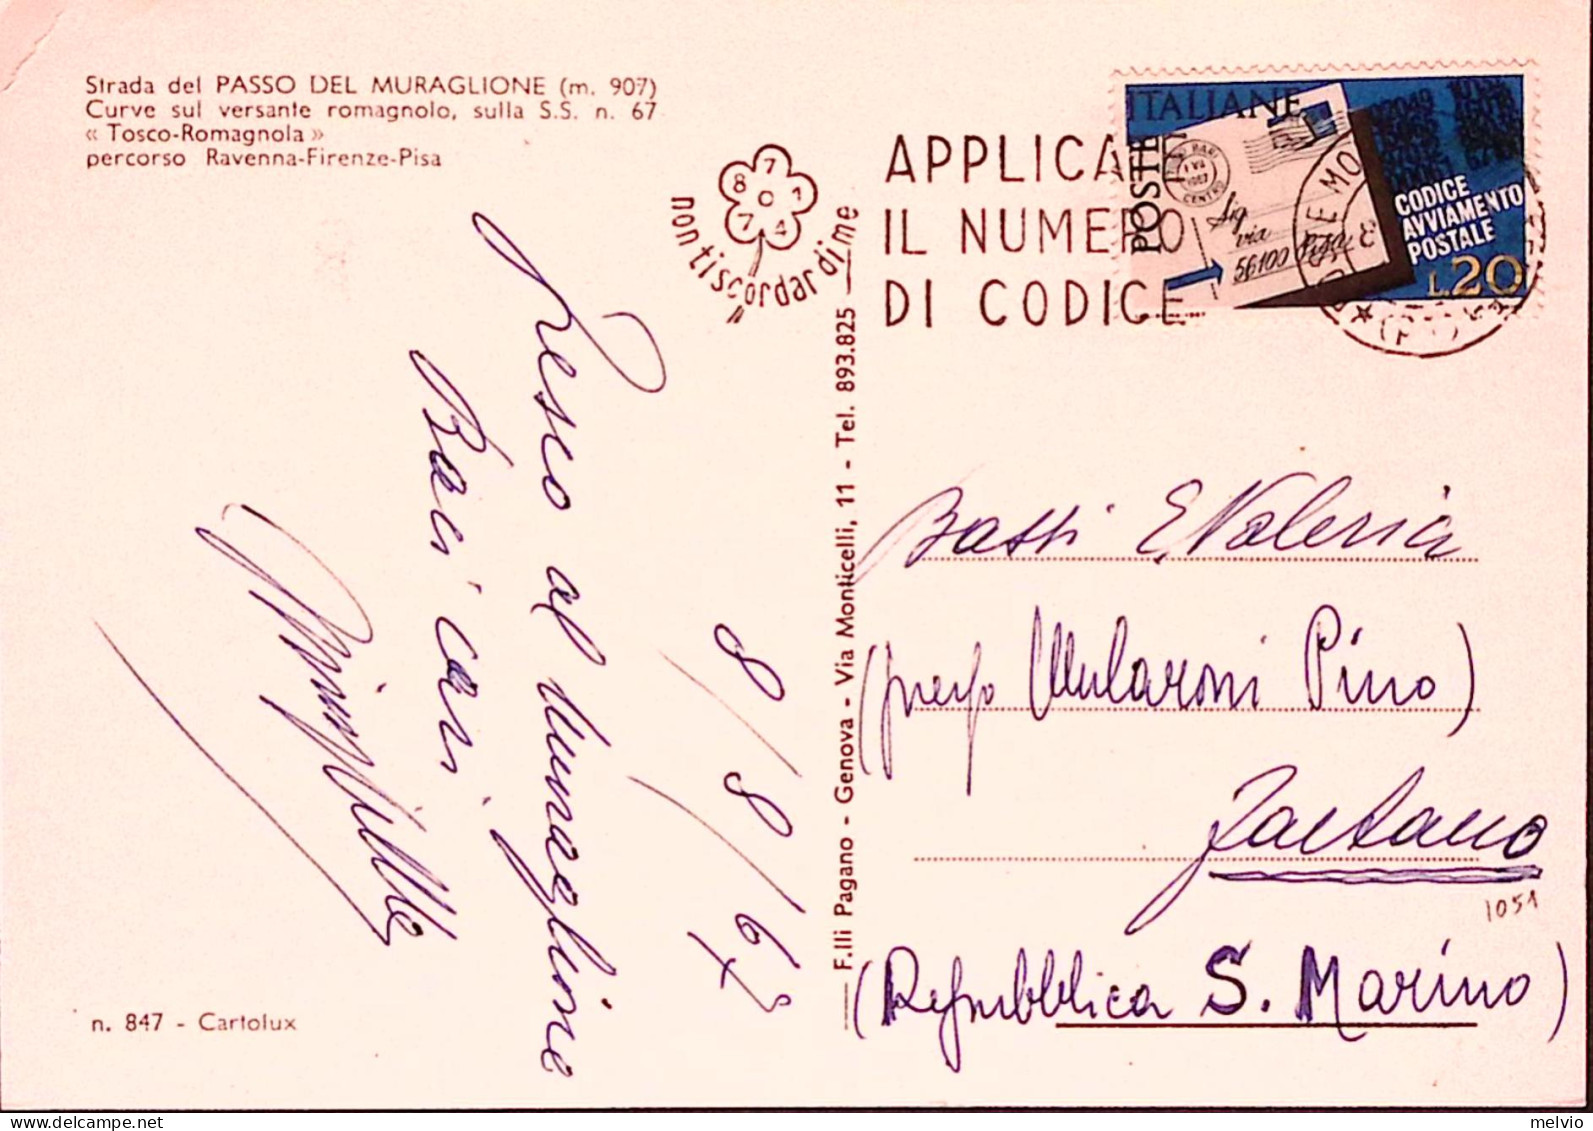 Strada del PASSO DEL MURAGLIONE (m. 907)
Curve sul versante romagnolo, sulla S.S. n. 67
« Tosco-Romagnola »
percorso Ravenna-Firenze-Pisa
8 7 1 4 7
non ti scordar di me
APPLICA
IL NUMERO
DI CODICE
POSTE ITALIANE
BARI
1 VII
1967
CENTRO
Sig.
via
56100 Pisa
CODICE
AVVIAMENTO
POSTALE
L.20
Fresco al Muraglione
Baci cari
8/8/67
F.lli Pagano - Genova - Via Monticelli, 11 - Tel. 893.825
Bassi Valeria
(presso Mularoni Pino)
Gaetano
1051
(Repubblica S. Marino)
n. 847 - Cartolux
melvio